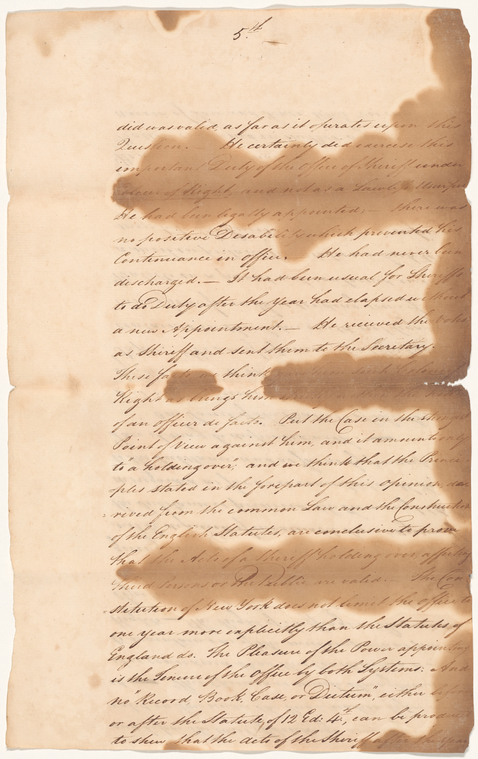 5.th
did was valid, as far as it operates upon this
Question. He certainly did exercise this
important Duty of the office of Sheriff under
Colour of Right, and not as a
He had been legally appointed; — there was
no positive Disability which prevented his
Continuance in office. He had never been
discharged. — It had been usual for Sheriffs
to do Duty after the Year had elapsed without
a new Appointment. — He received the Votes
as Sheriff and sent them to the Secretary.
These think
Right as brings him
of an officer de facto. Put the Case in the strongest
Point of view against him, and it amounts only
to "a holding over;" and we think that the Princi-
ples stated in the forepart of this opinion, de-
rived from the common Law and the Construction
of the English Statutes, are conclusive to prove
that the Acts of a Sheriff holding over affecting
third Persons or the Public are valid. — The Con-
stitution of New York does not limit the office to
one year more explicitly than the Statutes of
England do. The Pleasure of the Power appointing
is the Tenure of the Office by both Systems: And
no "Record, Book, Case, or Dictum", either before
or after the Statute of 12 Ed: 4th, can be produced
to shew that the acts of the Sheriff after the year